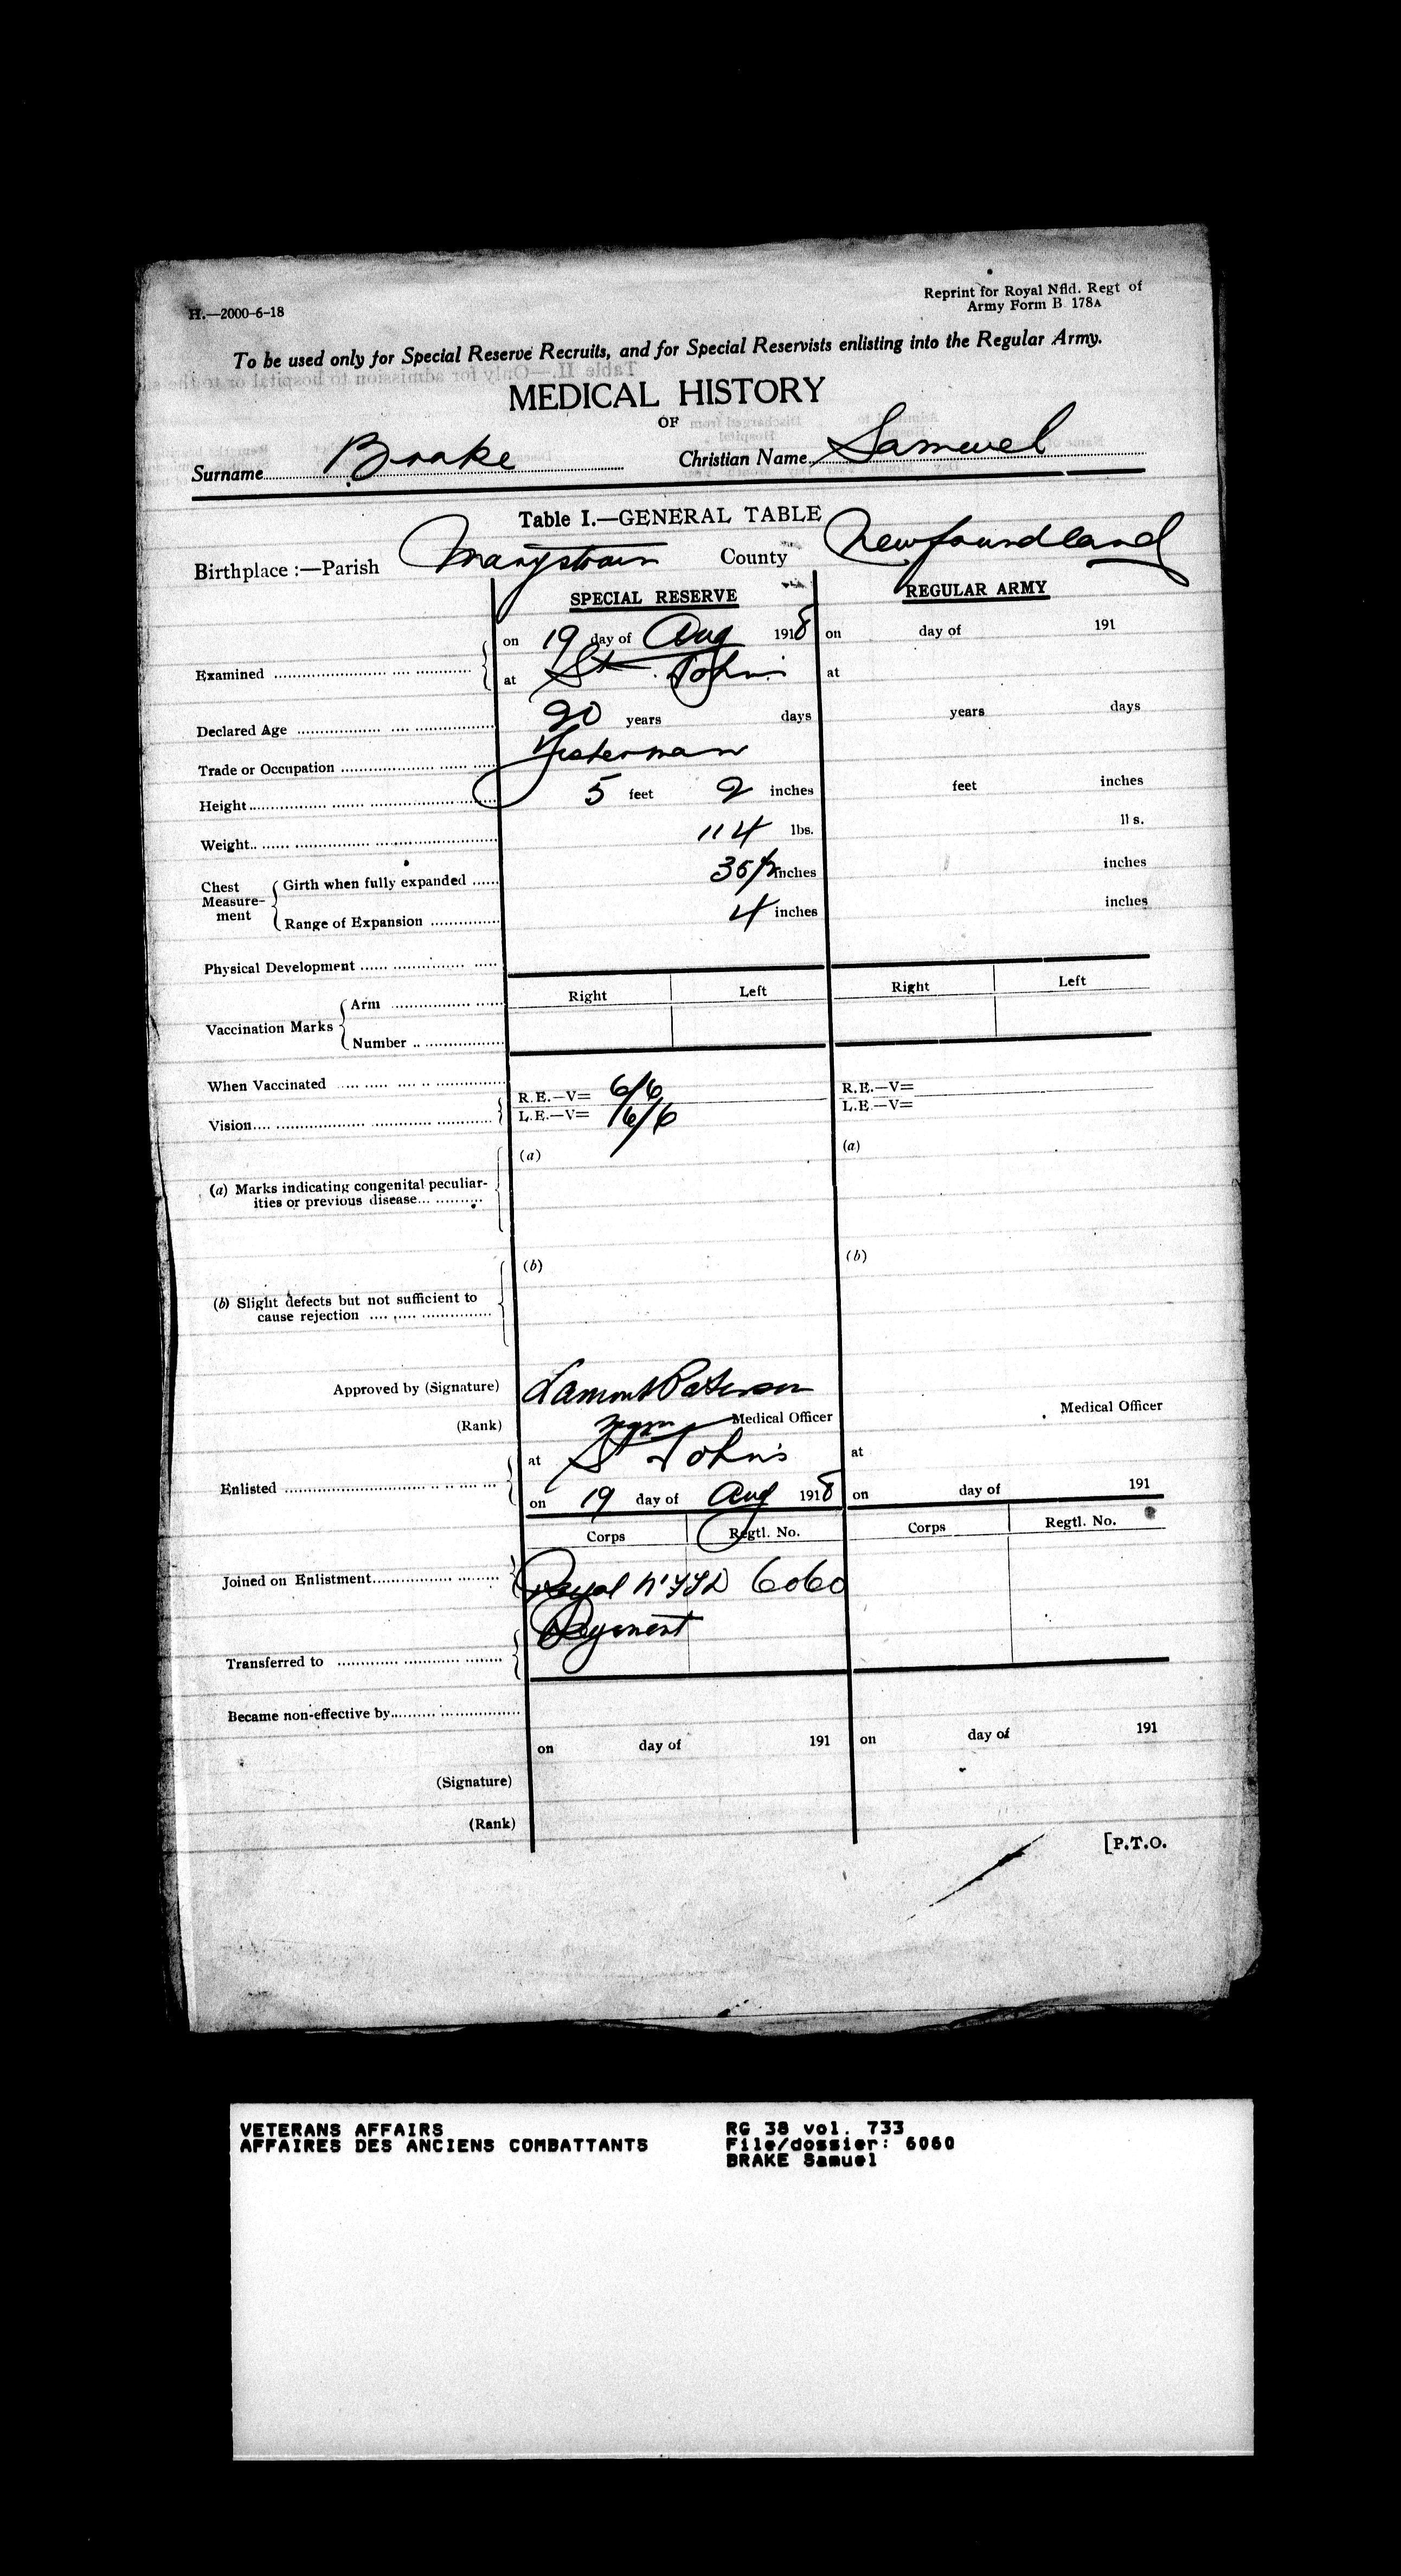 H.—2000-6-18
Reprint for Royal Nfld. Regt of
Army Form B 178A
To be used only for Special Reserve Recruits, and for Special Reservists enlisting into the Regular Army.
MEDICAL HISTORY
OF
Surname Brake Christian Name Samuel
Table I.—GENERAL TABLE
Birthplace :—Parish Marystown County Newfoundland
SPECIAL RESERVE REGULAR ARMY
on 19 day of Aug 1918 on day of 191
Examined
at St John's at
Declared Age 20 years days years days
Trade or Occupation Fisherman
Height 5 feet 2 inches feet inches
Weight 114 lbs. lbs.
Chest Measurement
Girth when fully expanded 35 1/2 inches inches
Range of Expansion 4 inches inches
Physical Development
Right Left Right Left
Vaccination Marks
Arm
Number
When Vaccinated
Vision
R.E.—V= 6/6 R.E.—V=
L.E.—V= 6/6 L.E.—V=
(a) (a)
(a) Marks indicating congenital peculiar-
ities or previous disease
(b) (b)
(b) Slight defects but not sufficient to
cause rejection
Approved by (Signature) Lamont Paterson
(Rank) Medical Officer Medical Officer
at St John's at
Enlisted
on 19 day of Aug 1918 on day of 191
Corps Regtl. No. Corps Regtl. No.
Joined on Enlistment Royal N'FLD 6060
Regiment
Transferred to
Became non-effective by
on day of 191 on day of 191
(Signature)
(Rank)
[P.T.O.
VETERANS AFFAIRS RG 38 vol. 733
AFFAIRES DES ANCIENS COMBATTANTS File/dossier: 6060
BRAKE Samuel